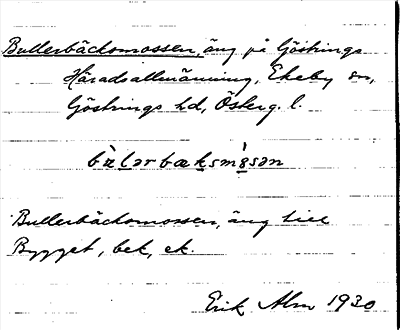 Bullerbäcksmossen, äng på Göstrings
Häradsallmänning, Ekeby sn,
Göstrings hd, Österg. l.
bùlərbæksmǒsən
Bullerbäcksmossen, äng till
Bygget, bek, ek.
Erik Alm 1930